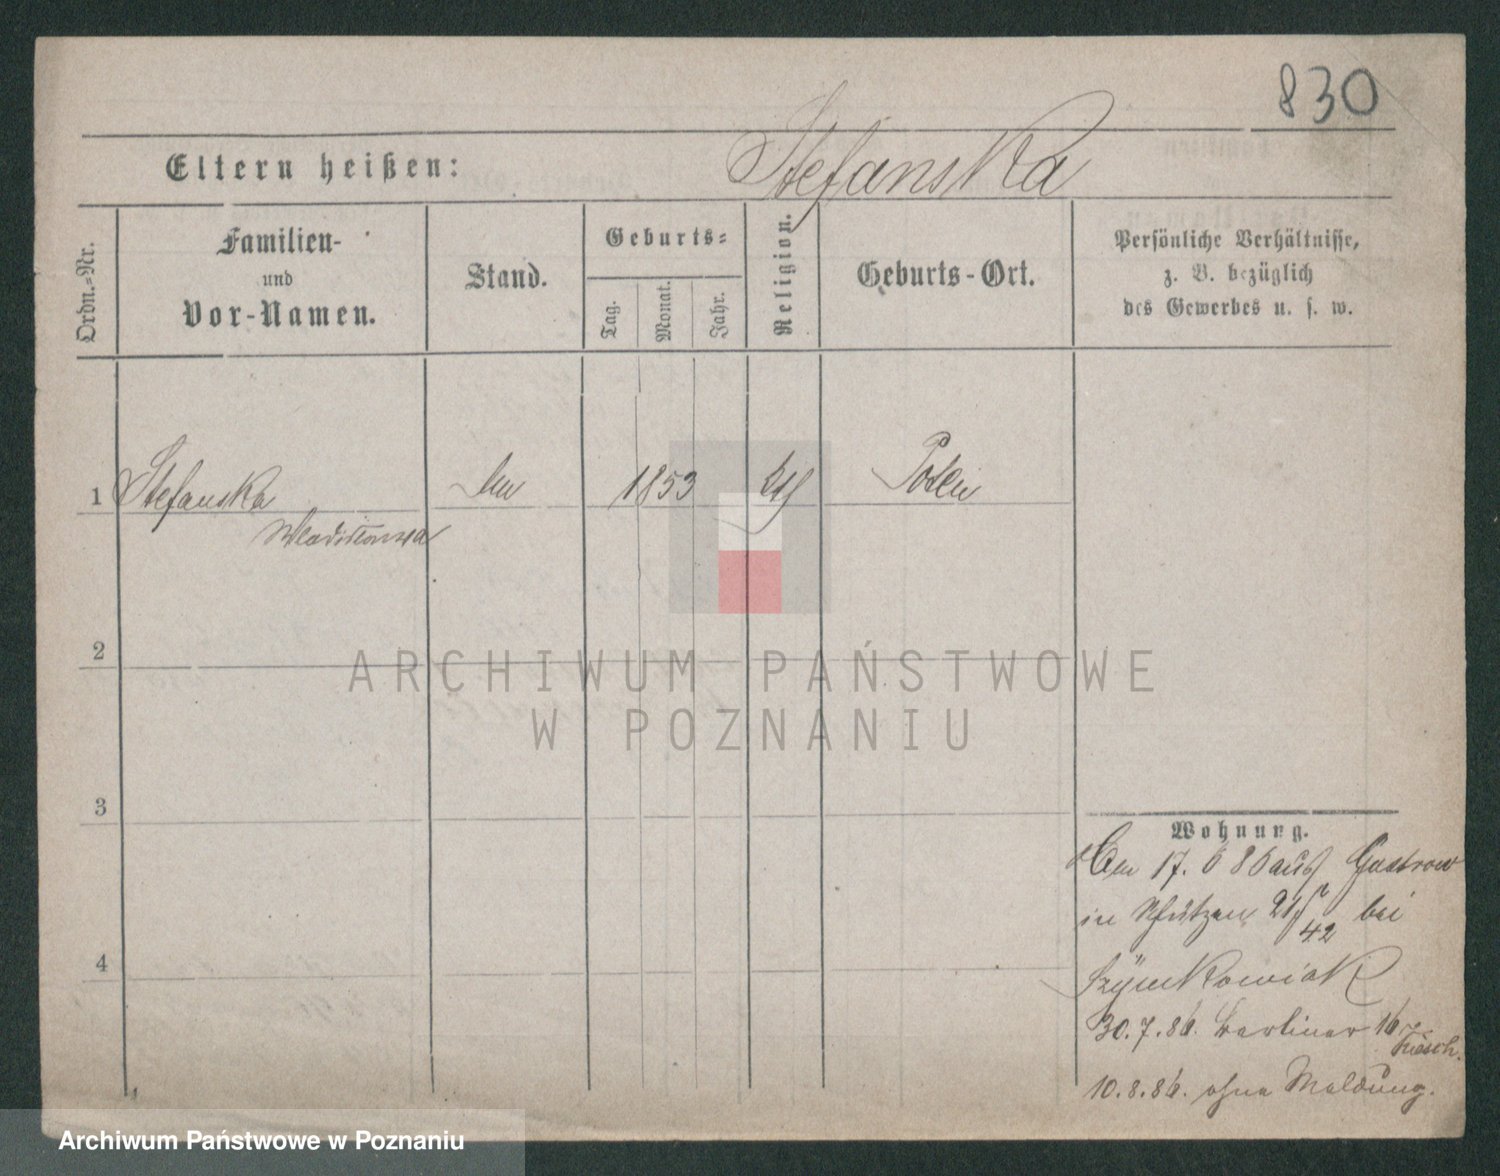 830
Eltern heißen:
Stefanska
Ordn.-Nr.
Familien-
und
Vor-Namen.
Stand.
Geburts-
Tag.
Monat.
Jahr.
Religion.
Geburts-Ort.
Persönliche Verhältnisse,
z. B. bezüglich
des Gewerbes u. s. w.
1 Stefanska 1853 Posen
2
ARCHIWUM PAŃSTWOWE
W POZNANIU
3
Wohnung.
17. 6 86 aus Gustrow
in Schützen 21 bei
42
4
Szymkowiak
30.7.86. Berliner 16
10.8.86. ohne Meldung.
Archiwum Państwowe w Poznaniu